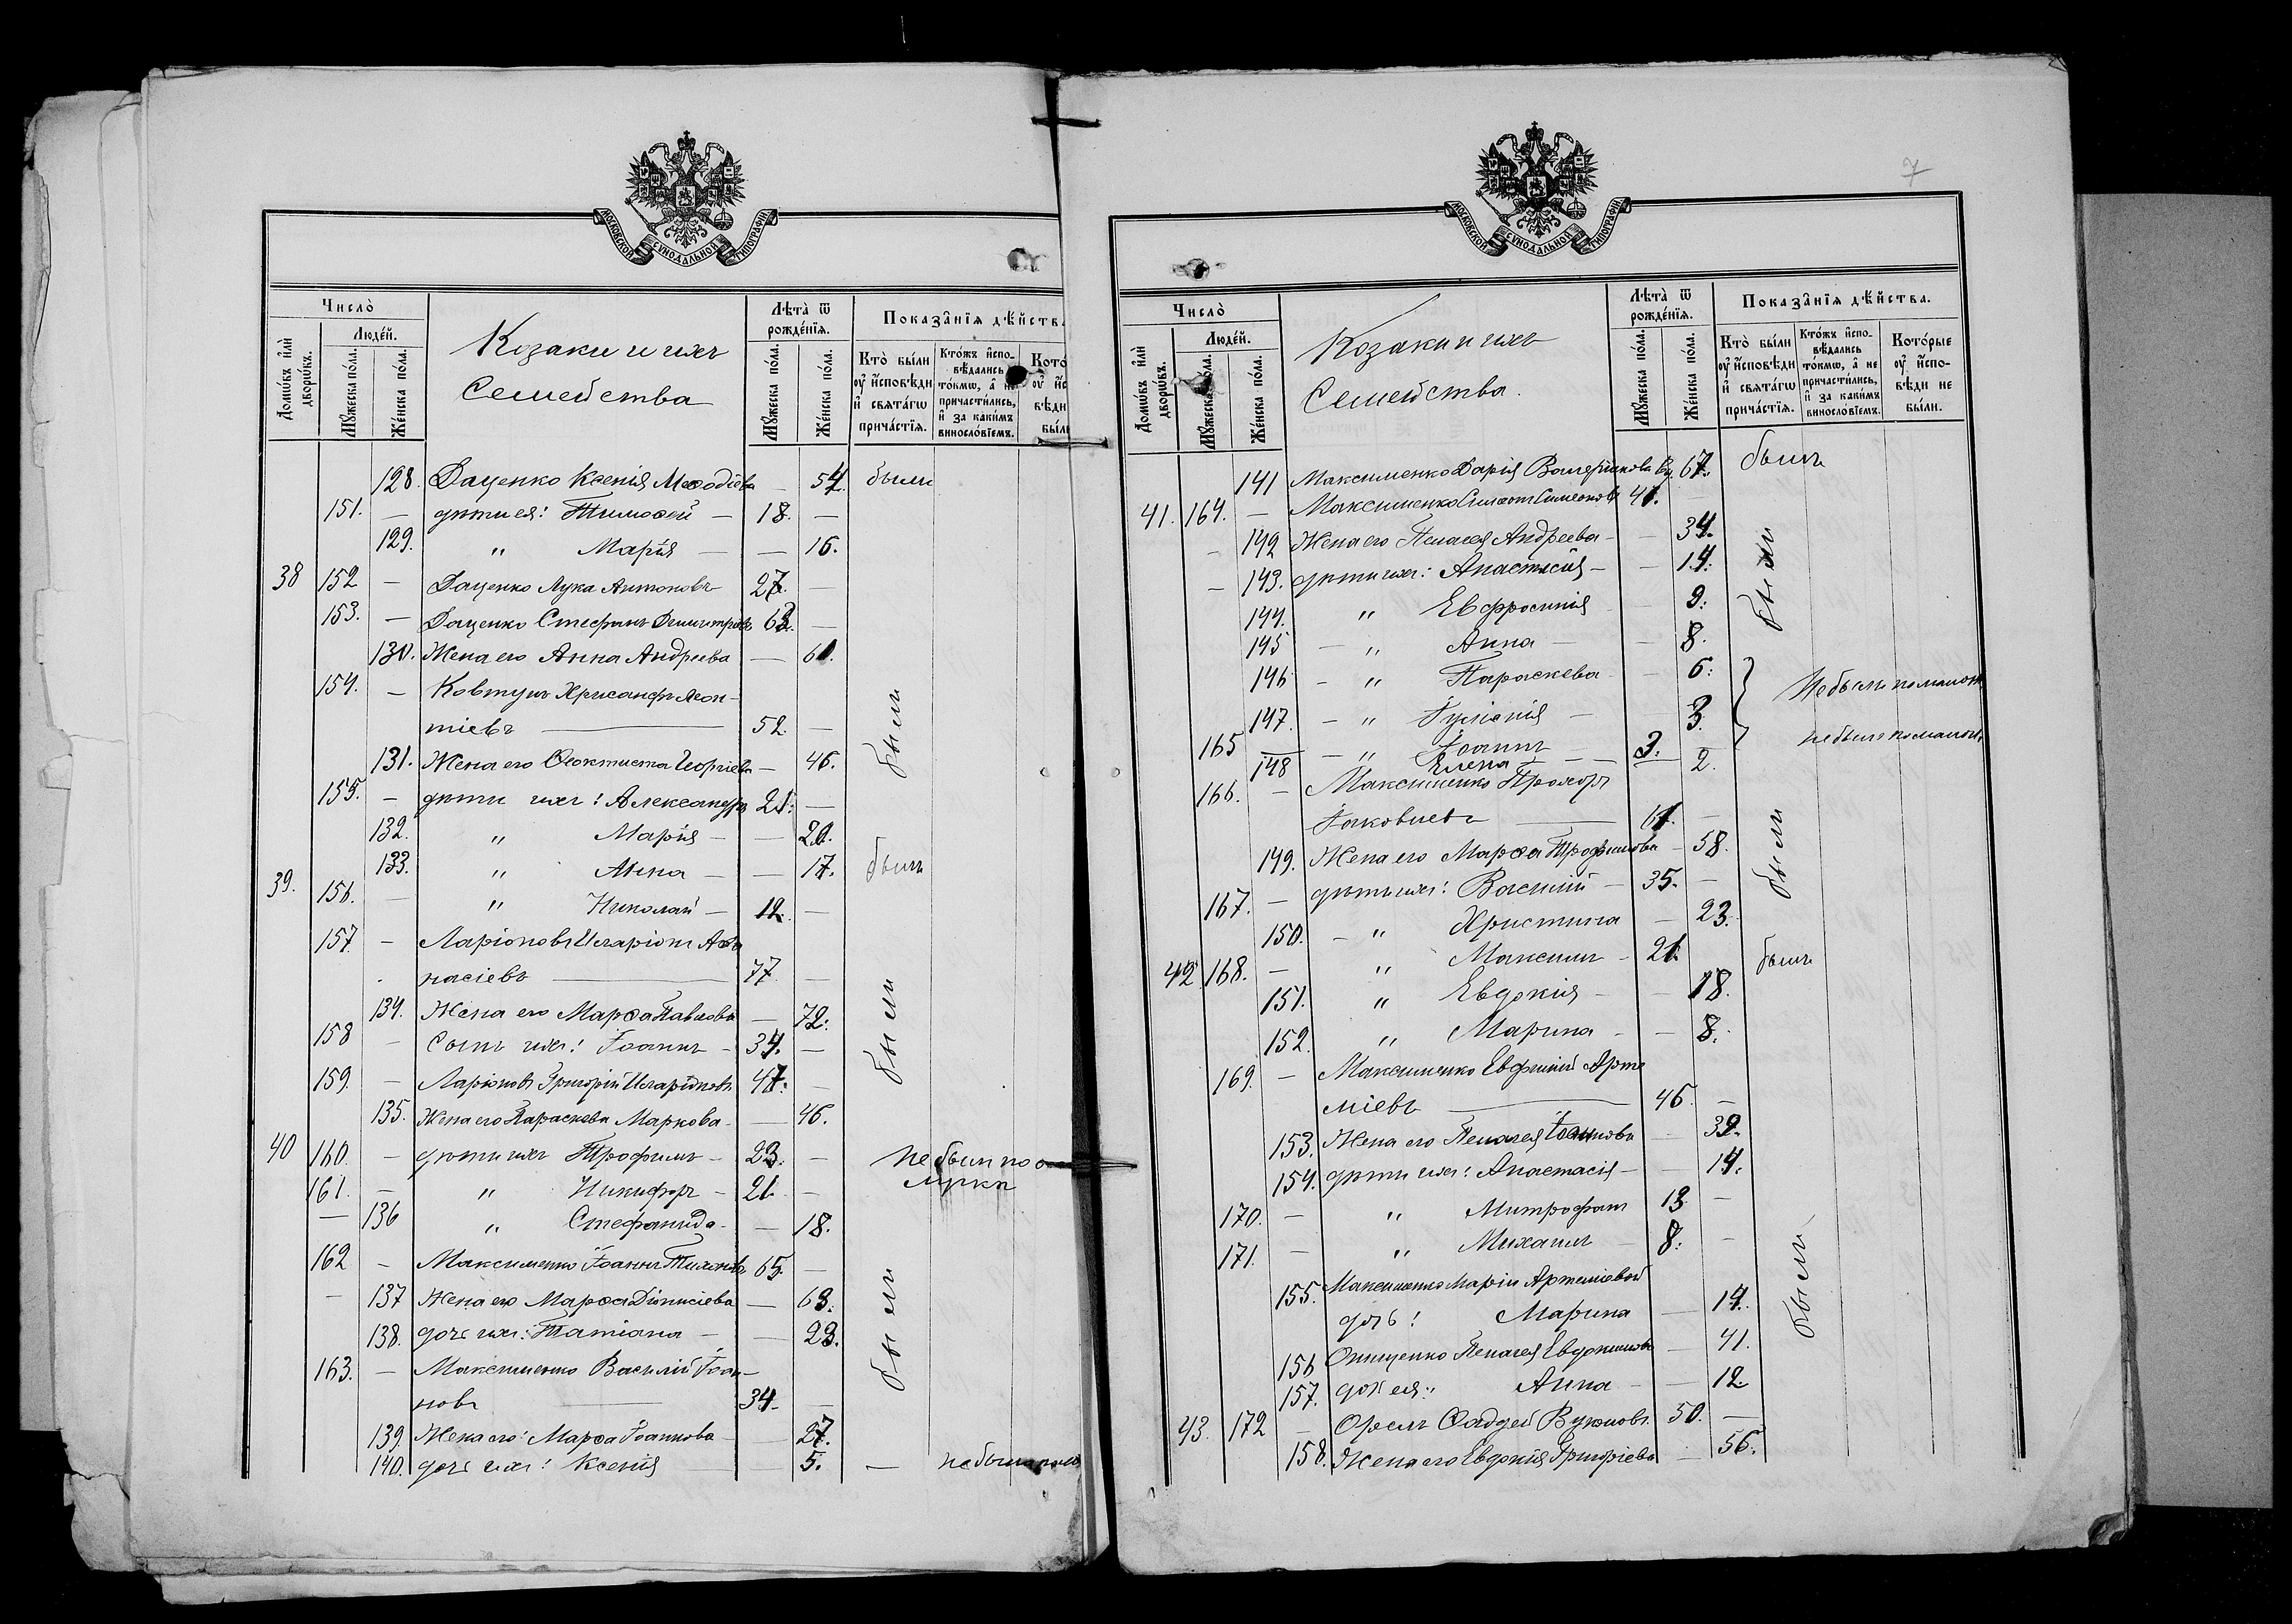 МОСКОВСКОЙ СѴНОДАЛЬНОЙ ТИПОГРАФІИ
Число̀
Людéй.
Домѡ́въ и҆лѝ дворѡ́въ.
Мꙋ́жеска по́ла.
Же́нска по́ла.
Козаки и ихъ
Семейства
Лѣ́та ѿ рожде́нїѧ.
Мꙋ́жеска по́ла.
Же́нска по́ла.
Показа̑нїѧ дѣ́йства
Кто̀ бы́ли оу҆ и҆сповѣ́ди и҆ свята́гѡ прича́стїѧ.
Кто́жъ и҆спо-вѣ́дались то́кмѡ, а҆ не причасти́лись, и҆ за каки́мъ винослóвїемъ.
128. Даценко Ксенія Меѳодіева — 54. были
151. — дѣти ея: Тимоѳей — 18. —
129. " Марія — — 16.
38 152 — Даценко Лука Антоновъ 27. —
153. — Даценко Стефанъ Димитріевъ 63. —
130. Жена его Анна Андреева — 61.
154. — Ковтунъ Хрисанфъ Леон-
тіевъ — 52. —
были
131. Жена его Ѳеоктиста Георгіева — 46.
155. — дѣти ихъ: Александръ 21. —
132. " Марія — — 20.
133. " Анна — — 17. были
39. 156. — " Николай — 12. —
157 — Ларіоновъ Иларіонъ Аѳа
насіевъ — 77. —
134. Жена его Марѳа Павлова — 72.
158 — Сынъ ихъ: Іоаннъ — 34. —
были
159. — Ларіоновъ Григорій Иларіоновъ 47. —
135. Жена его Параскева Маркова — — 46.
40 160. — дѣти ихъ Трофимъ — 23. — не были по о
161. — " Никифоръ — 21. — лучки
— 136 " Стефанида — — 18.
162 — Максименко Іоаннъ Тихоновъ 65. —
— 137 Жена его Марѳа Діонисіева — 63.
были
138. дочь ихъ: Татіана — — 23.
163. — Максименко Василій Іоан-
новъ — 34. —
139. Жена его: Марѳа Іоаннова — 27.
140. дочь ихъ: Ксенія 5. — не была по мал
7
МОСКОВСКОЙ СѴНОДАЛЬНОЙ ТИПОГРАФІИ
Число̀
Людéй.
Домѡ́въ и҆лѝ дворѡ́въ.
Мꙋ́жеска по́ла.
Же́нска по́ла.
Козаки и ихъ
Семейства.
Лѣ́та ѿ рожде́нїѧ.
Мꙋ́жеска по́ла.
Же́нска по́ла.
Показа̑нїѧ дѣ́йства.
Кто̀ бы́ли оу҆ и҆сповѣ́ди и҆ свята́гѡ прича́стїѧ.
Кто́жъ и҆спо-вѣ́дались то́кмѡ, а҆ не причасти́лись, и҆ за каки́мъ винослóвїемъ.
Кото́рые оу҆ и҆спо-вѣ́ди не бы́ли.
141 Максименко Дарія Валеріанова вд. 67. были
41. 164. — Максименко Симеонъ Симеоновъ 41. —
— 142 Жена его Пелагея Андреева — — 34.
— 143. дѣти ихъ: Анастасія — — 14.
были
144. " Евфросинія 9.
145 — " Анна — — 8.
146 — " Параскева — 6.
Не были по малол
147. — " Іуліанія — 3.
165 — — " Іоаннъ — 3. — не были по малол
148 Елена — — — 2.
166. — Максименко Прохоръ
Іаковлевъ — 61. —
149. Жена его Марѳа Трофимова — 58.
были
167. — дѣти ихъ: Василій — 35. —
150. — " Христина — 23.
42 168. — " Максимъ — 21. были
151. " Евдокія — — 18.
152. " Марина — — 8.
169. — Максименко Евфимій Арте
міевъ — 46. —
153. Жена его Пелагея Іоаннова — 39.
154. дѣти ихъ: Анастасія — — 14.
170. — " Митрофанъ 13. —
171. — " Михаилъ — 8. —
155. Максименко Маріи Артеміевой
дочь: Марина — 14.
были
156 Онищенко Пелагея Евдокимова — 41.
157. дочь ея: Анна — — 12.
43. 172 — Орелъ Ѳаддей Вуколовъ. 50. —
158. Жена его Евдокія Григоріева — 56.